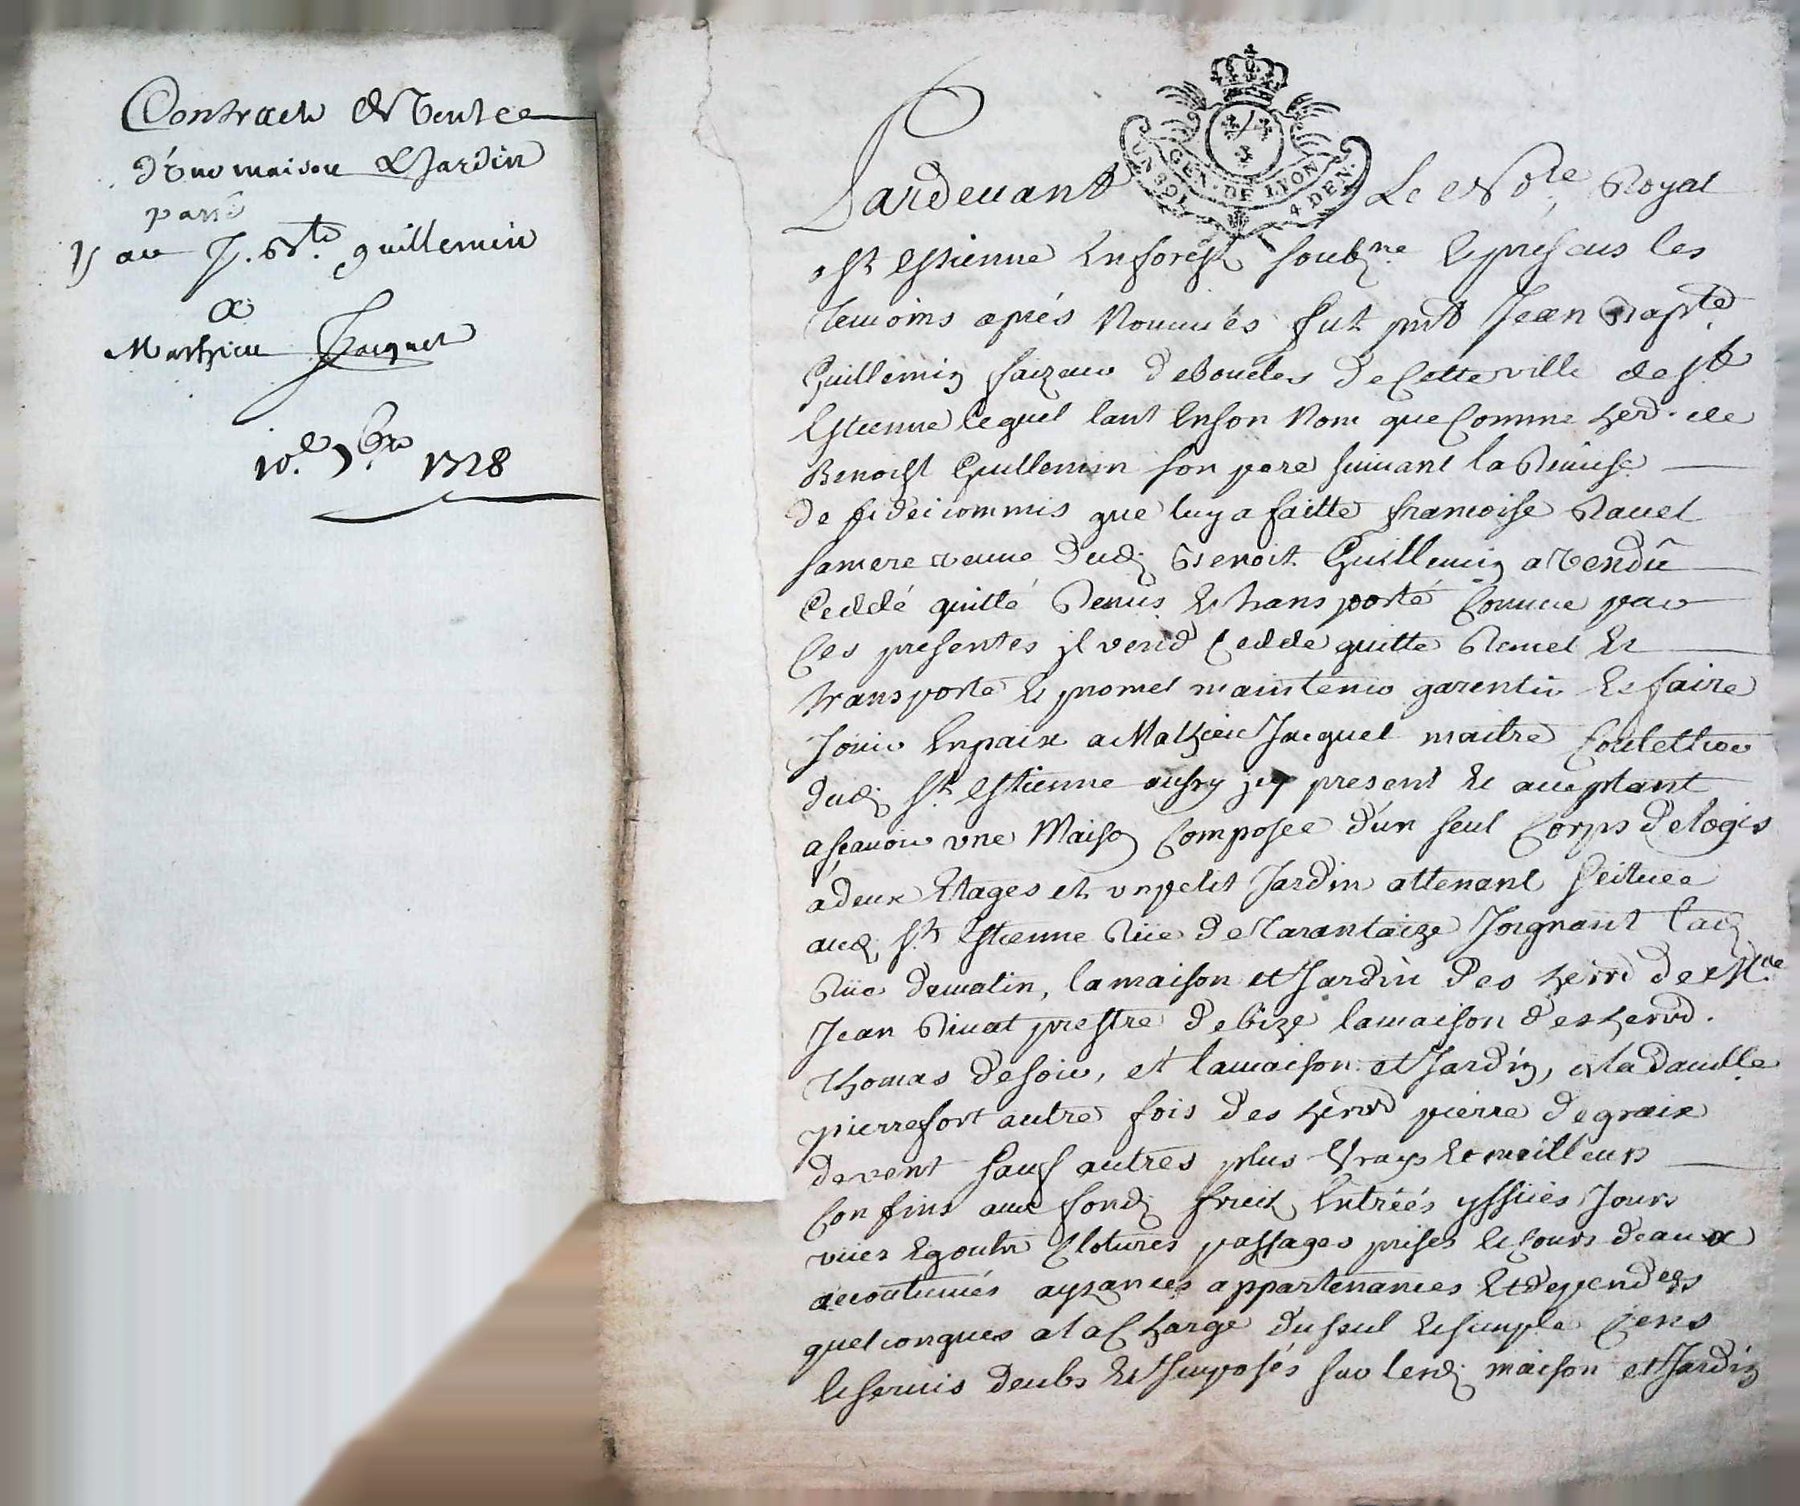 Contract de Vente
d'une maison & Jardin
passé
par J. Bte. guillemin
a
Mathieu Jacquet
10.e 7bre 1728
GEN. DE LYON
4 DEN.
Pardevant Le No.re Royal
a St Estienne en forest soubz.ne & presens les
temoins aprés Nommés fut p.nt Jean Bap.te
Guillemin faizeur deboucles de Cette ville de St
Estienne lequel tant en son Nom que Comme herd. de
Benoist Guillemin son pere suivant la Remise
de fideicommis que luy a faitte francoise Ravel
sa mere veuve dud. Benoit Guillemin a Vendû
Ceddé quitté Remis & transporté Comme par
Ces presentes jl vend Cedde quitte Remet et
transporte & promet maintenir garentir & faire
Jouir en paix a Mathieu Jacquet maitre Coutellier
dud. St Estienne aussy jcy present & acceptant
a sçavoir une Maison Composée d'un seul Corps de logis
a deux Etages et un petit Jardin attenant scituée
aud. St Estienne Rüe de Tarantaize Joignant lad.
Rüe de matin, la maison et Jardin des heird de M.re
Jean Rivat prestre de bize la maison des herd.
Thomas de soir, et la maison et Jardin, a la Dam.lle
pierrefort autre fois des herd pierre degraix
de vent sauf autres plus Vrays & meilleurs
Confins aux fondz fruitz Entréés yssües Jours
vües Egouts Clotures passages prises & Cours deaux
accoutumés ayzances appartenances Et dependces
quelconques a la Charge du seul & simple Cens
& servis deubs & Imposés sur lesd. maison et Jardin